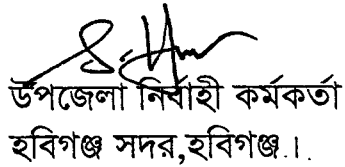 উপজেলা নির্বাহী কর্মকর্তা
হবিগঞ্জ সদর,হবিগঞ্জ।